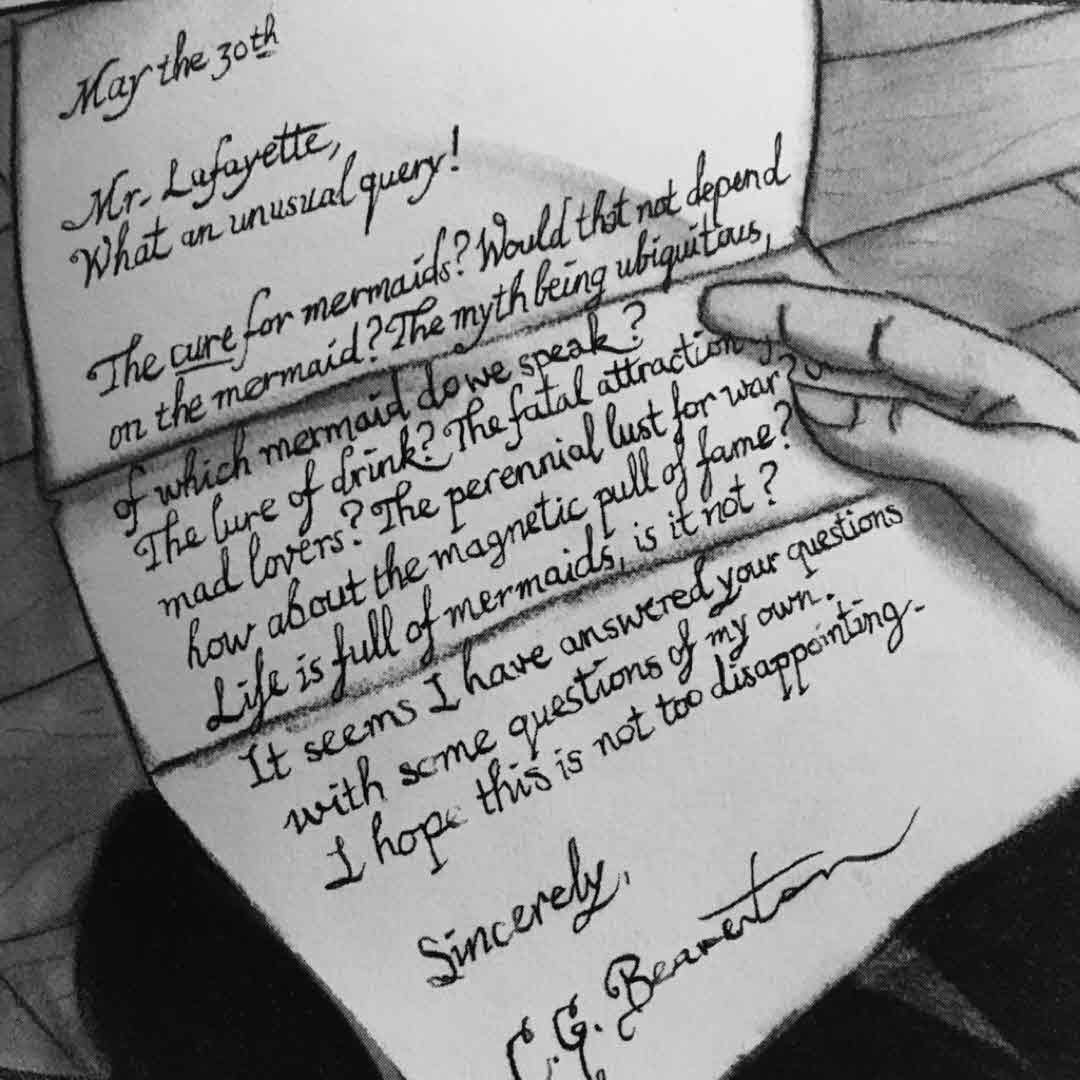 May the 30th
Mr. Lafayette,
What an unusual query!
The cure for mermaids? Would that not depend
on the mermaid? The myth being ubiquitous,
of which mermaid do we speak?
The lure of drink? The fatal attraction
mad lovers? The perennial lust for war?
how about the magnetic pull of fame?
Life is full of mermaids, is it not?
It seems I have answered your questions
with some questions of my own.
I hope this is not too disappointing.
Sincerely,
C.G. Beaverton